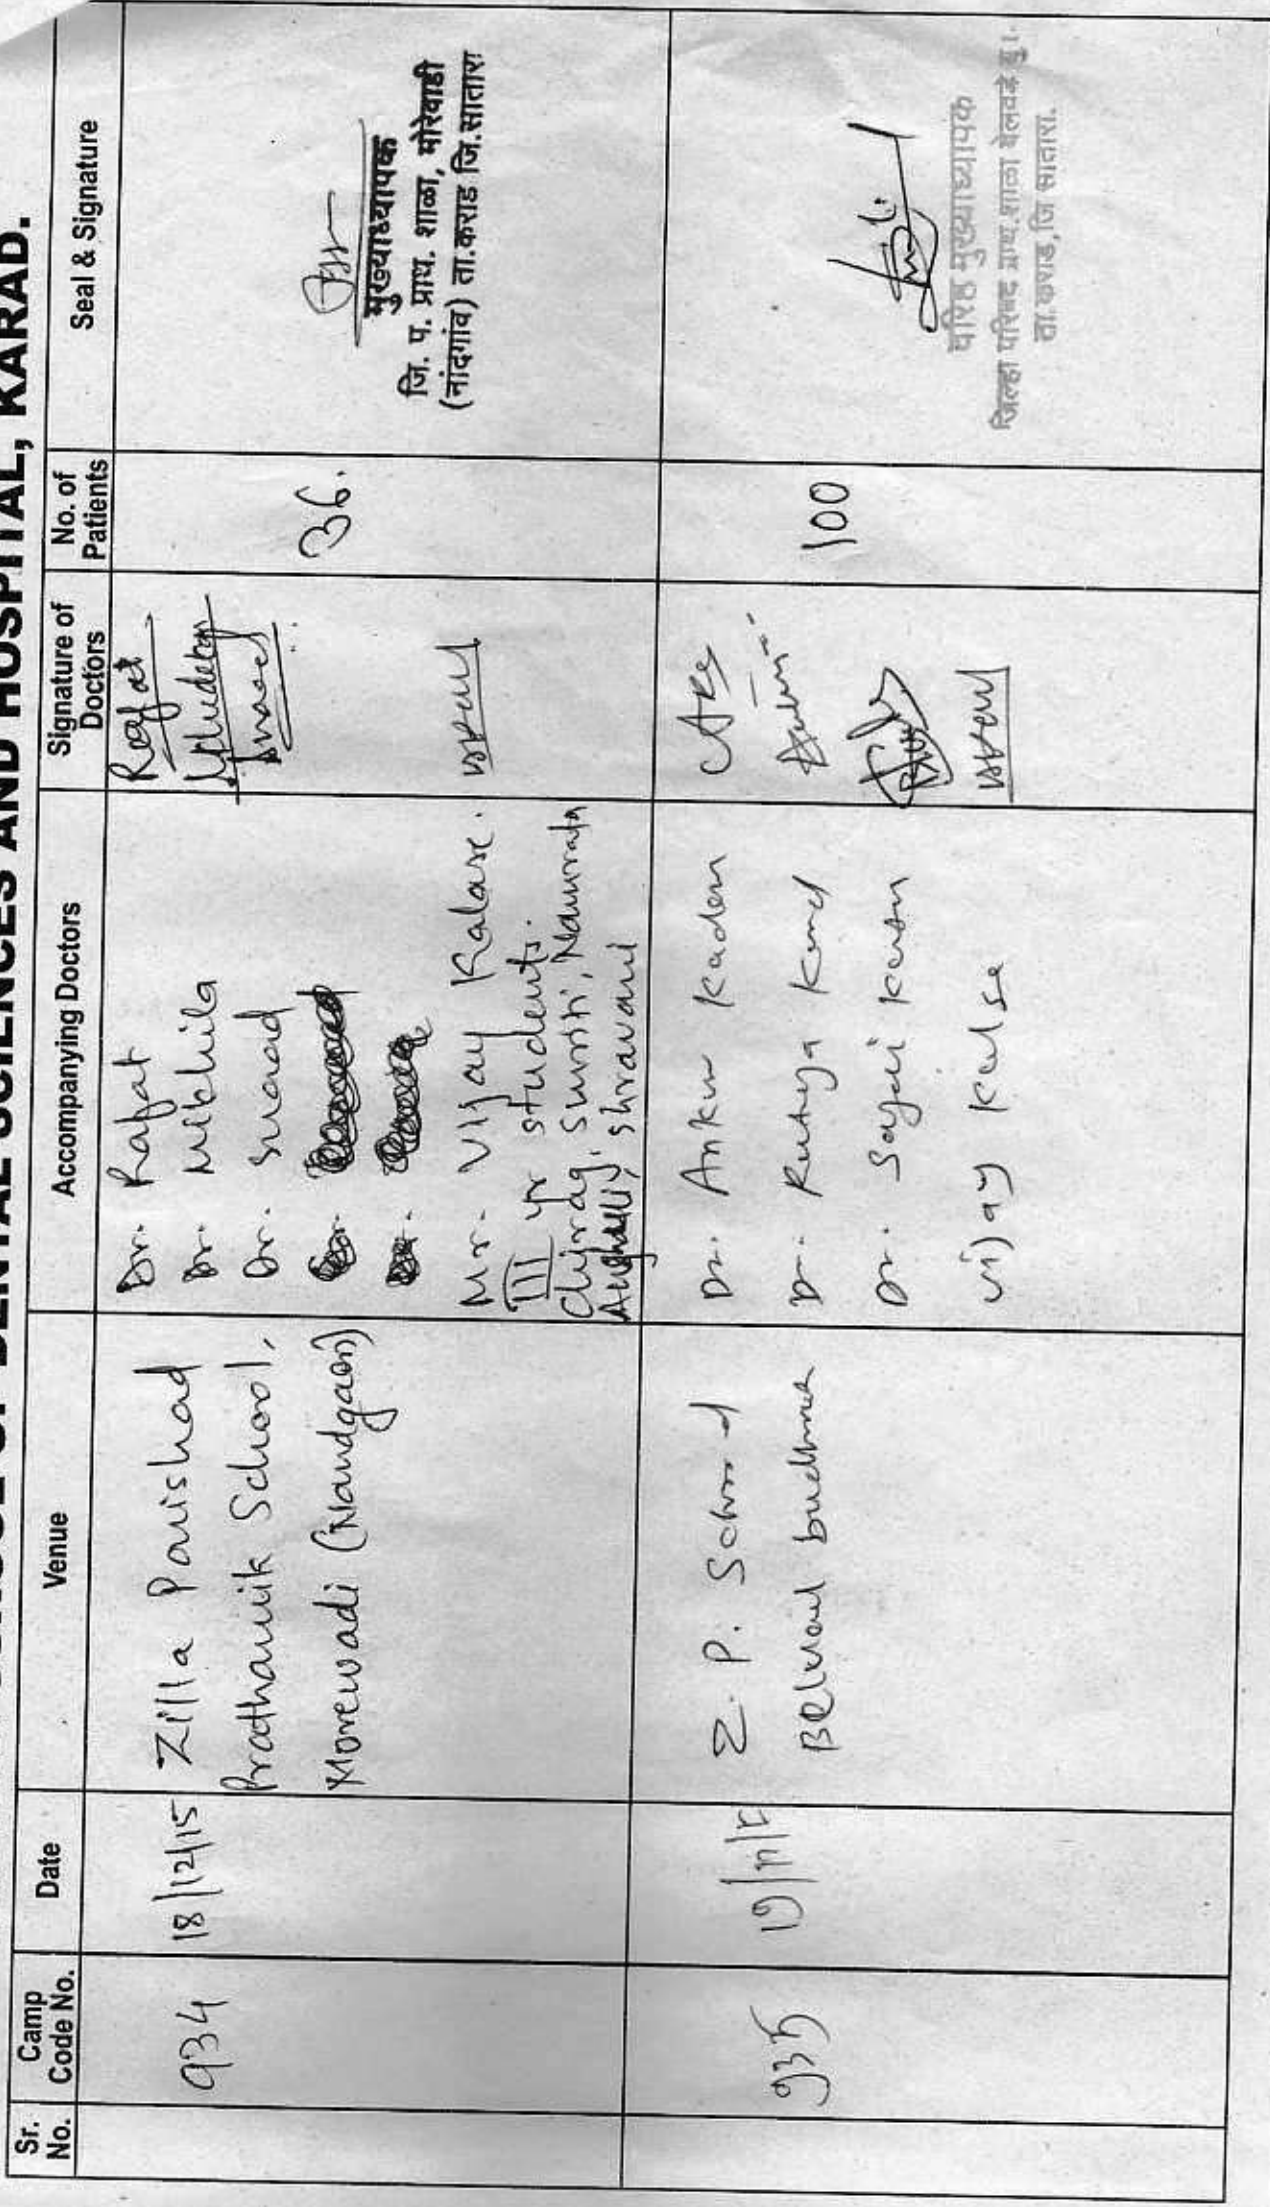 DENTAL SCIENCES AND HOSPITAL, KARAD.
Sr. No.
Camp Code No.
Date
Venue
Accompanying Doctors
Signature of Doctors
No. of Patients
Seal & Signature
934
18/12/15
Zilla Parishad
Prathamik School,
Morewadi (Nandgaon)
Dr. Rafat
Dr. Nikhila
Dr. Suaad
Mr. Vijay Kalase.
III yr students.
Chirag, Sunsti, Namrata
shravani
Rafat
36.
मुख्याध्यापक
जि. प. प्राथ. शाळा, मोरेवाडी
(नांदगांव) ता.कराड जि.सातारा
935
Z. P. School
Dr. Ankur Kadam
Dr. Rutuja
Dr. Sayali
Vijay
100
वरिष्ठ मुख्याध्यापक
जिल्हा परिषद प्राथ.शाळा बेलवडे बु।।
ता.कराड, जि सातारा.